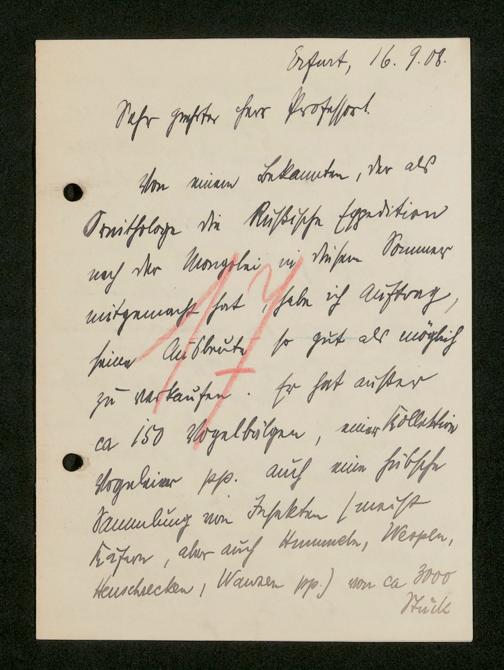 Erfurt, 16. 9. 08.
Sehr geehrter Herr Professor!
Von einem Bekannten, der als
Ornithologe die Russische Expedition
nach der Mongolei in diesem Sommer
mitgemacht hat, habe ich Auftrag,
seine Ausbeute so gut als möglich
zu verkaufen. Er hat außer
ca 150 Vogelbälgen, einer Kollektion
Vogeleier pp. auch eine hübsche
Sammlung von Insekten (meist
Käfern, aber auch Hummeln, Wespen,
Heuschrecken, Wanzen pp.) von ca 3000
Stück
17